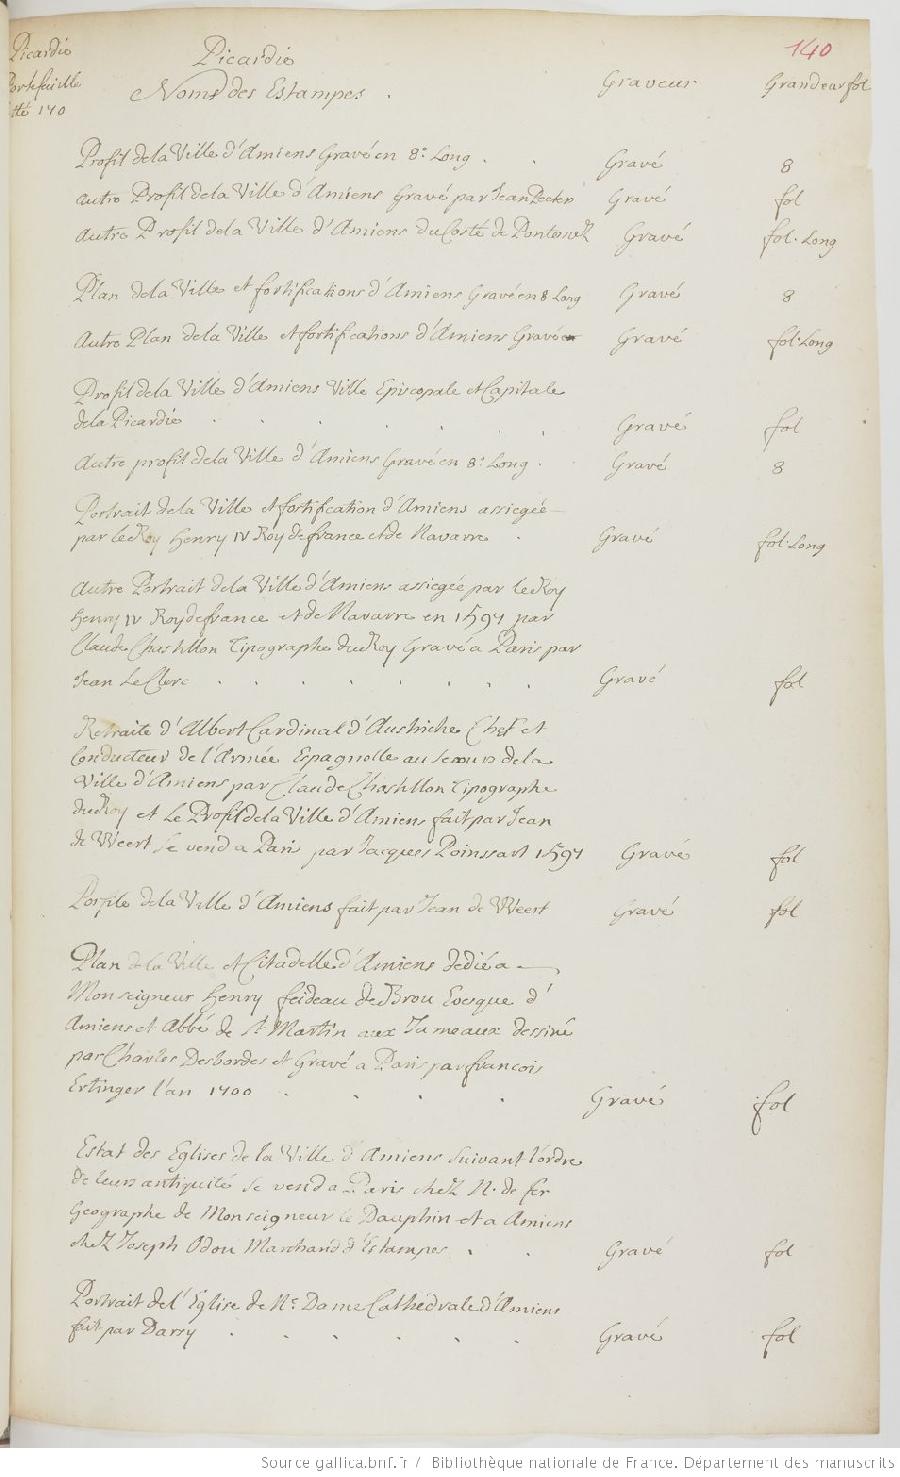 Picardie
Portefeuille
cotté 140
140
Picardie
Noms des Estampes .
Graveur
Grandeur fol
Profil de la Ville d'Amiens Gravé en 8.º Long . . Gravé 8
autre Profil de la Ville d'Amiens Gravé par Jean Gravé fol
autre Profil de la Ville d'Amiens du Costé de Gravé fol. Long
Plan de la Ville et fortifications d'Amiens Gravé en 8 Long Gravé 8
Autre Plan de la Ville et fortifications d'Amiens Gravé en Gravé fol. Long
Profil de la Ville d'Amiens Ville Episcopale et Capitale
de la Picardie . . . . . . Gravé fol
Autre profil de la Ville d'Amiens Gravé en 8.º Long . . Gravé 8
Portrait de la Ville et fortification d'Amiens assiegée
par le Roy Henry IV Roy de france et de Navarre . Gravé fol. Long
Autre Portrait de la Ville d'Amiens assiegée par le Roy
Henry IV Roy de france et de Navarre en 1597 par
Claude Chastillon Tipographe du Roy Gravé a Paris par
Jean Le Clerc . . . . . . . . Gravé fol
Retraite d'Albert Cardinal d'Austriche Chef et
Conducteur de l'Armée Espagnolle au secours de la
Ville d'Amiens par Claude Chastillon Tipographe
du Roy et Le Profil de la Ville d'Amiens fait par Jean
de Weert se vend a Paris par Jacques Poinssart 1597 Gravé fol
Porfile de la Ville d'Amiens fait par Jean de Weert Gravé fol
Plan de la Ville et Citadelle d'Amiens dedié a
Monseigneur Henry feideau de Brou Evesque d'
Amiens et Abbé de St Martin aux Jumeaux dessiné
par Charles Desbordes et Gravé a Paris par francois
Ertinger l'an 1700 . . . . Gravé fol
Estat des Eglises de la Ville d'Amiens suivant l'ordre
de leurs antiquité se vend a Paris chez N. de fer
Geographe de Monseigneur le Dauphin et a Amiens
chez Joseph Odou Marchand d'Estampes . . Gravé fol
Portrait de l'Eglise de Ne Dame Cathedrale d'Amiens
fait par Darsy . . . . . . Gravé fol
Source gallica.bnf.fr / Bibliothèque nationale de France. Département des manuscrits